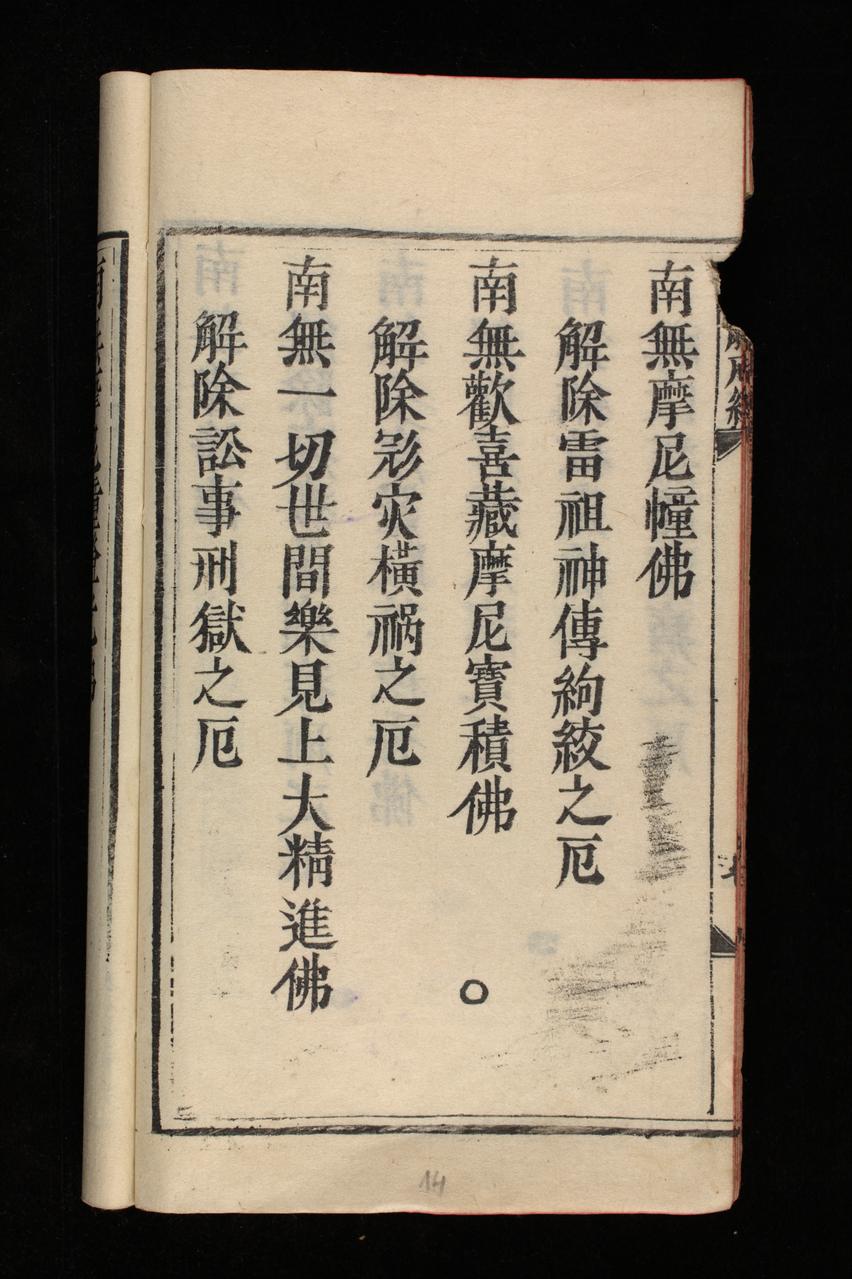 南無摩尼幢佛
解除雷祖神傳絢絞之厄
南無歡喜藏摩尼寶積佛
解除災橫禍之厄
南無一切世間樂見上大精進佛
解除訟事刑獄之厄
14